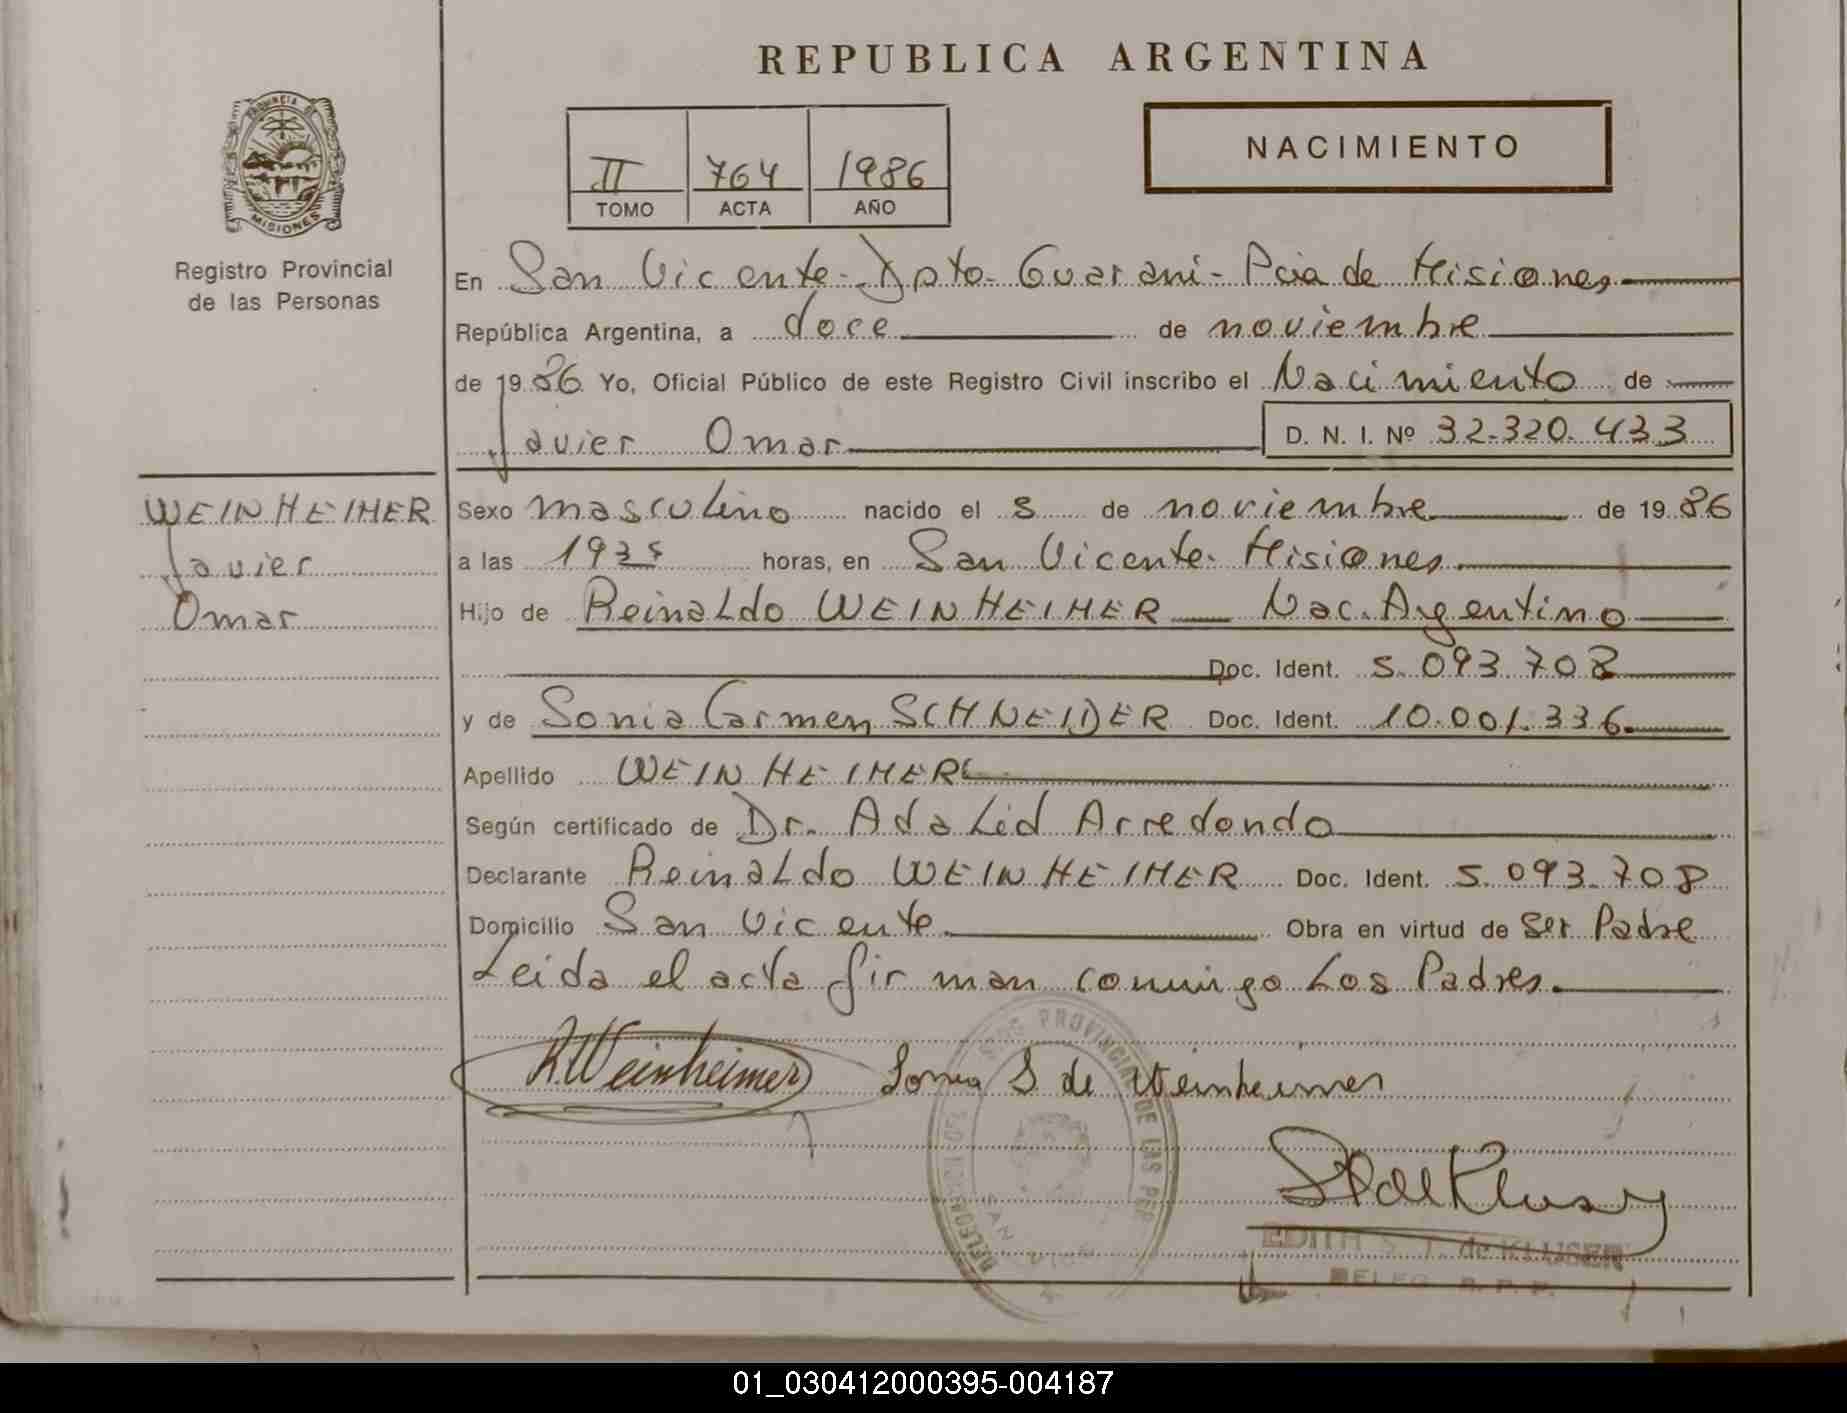 REPUBLICA ARGENTINA
PROVINCIA DE
MISIONES
Registro Provincial
de las Personas
II 764 1986
TOMO ACTA AÑO
NACIMIENTO
En San Vicente - Dpto - Guarani - Pcia de Misiones
República Argentina, a doce de noviembre
de 1986 Yo, Oficial Público de este Registro Civil inscribo el Nacimiento de
Javier Omar D. N. I. Nº 32.320.433
WEINHEIMER
Javier
Omar
Sexo masculino nacido el 5 de noviembre de 1986
a las 1935 horas, en San Vicente. Misiones
Hijo de Reinaldo WEINHEIMER Nac. Argentino
Doc. Ident. 5.093.708
y de Sonia Carmen SCHNEIDER Doc. Ident. 10.001.336
Apellido WEINHEIMER
Según certificado de Dr. Adalid Arredondo
Declarante Reinaldo WEINHEIMER Doc. Ident. 5.093.708
Domicilio San Vicente Obra en virtud de ser Padre
Leida el acta firman conmigo Los Padres.
R. Weinheimer Sonia S de Weinheimer
PROVINCIAL DE LAS PER
DELEGACION DEL
SAN VICE
EDITH S. T. de KLUSER
DELEG. R. P. P.
01_030412000395-004187